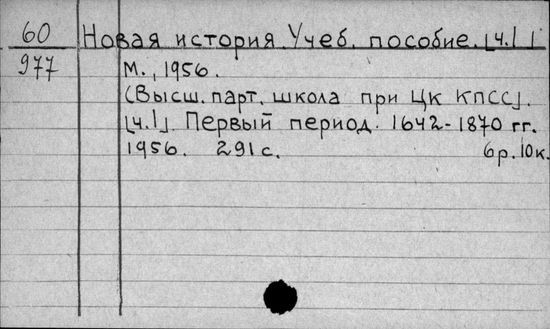 60 Новая история. Учеб. пособие. [ч.1]
977 М., 1956.
(Высш. парт. школа при ЦК КПСС].
[ч.1]. Первый период. 1642-1870 гг.
1956. 291 с. 6 р. 10 к.